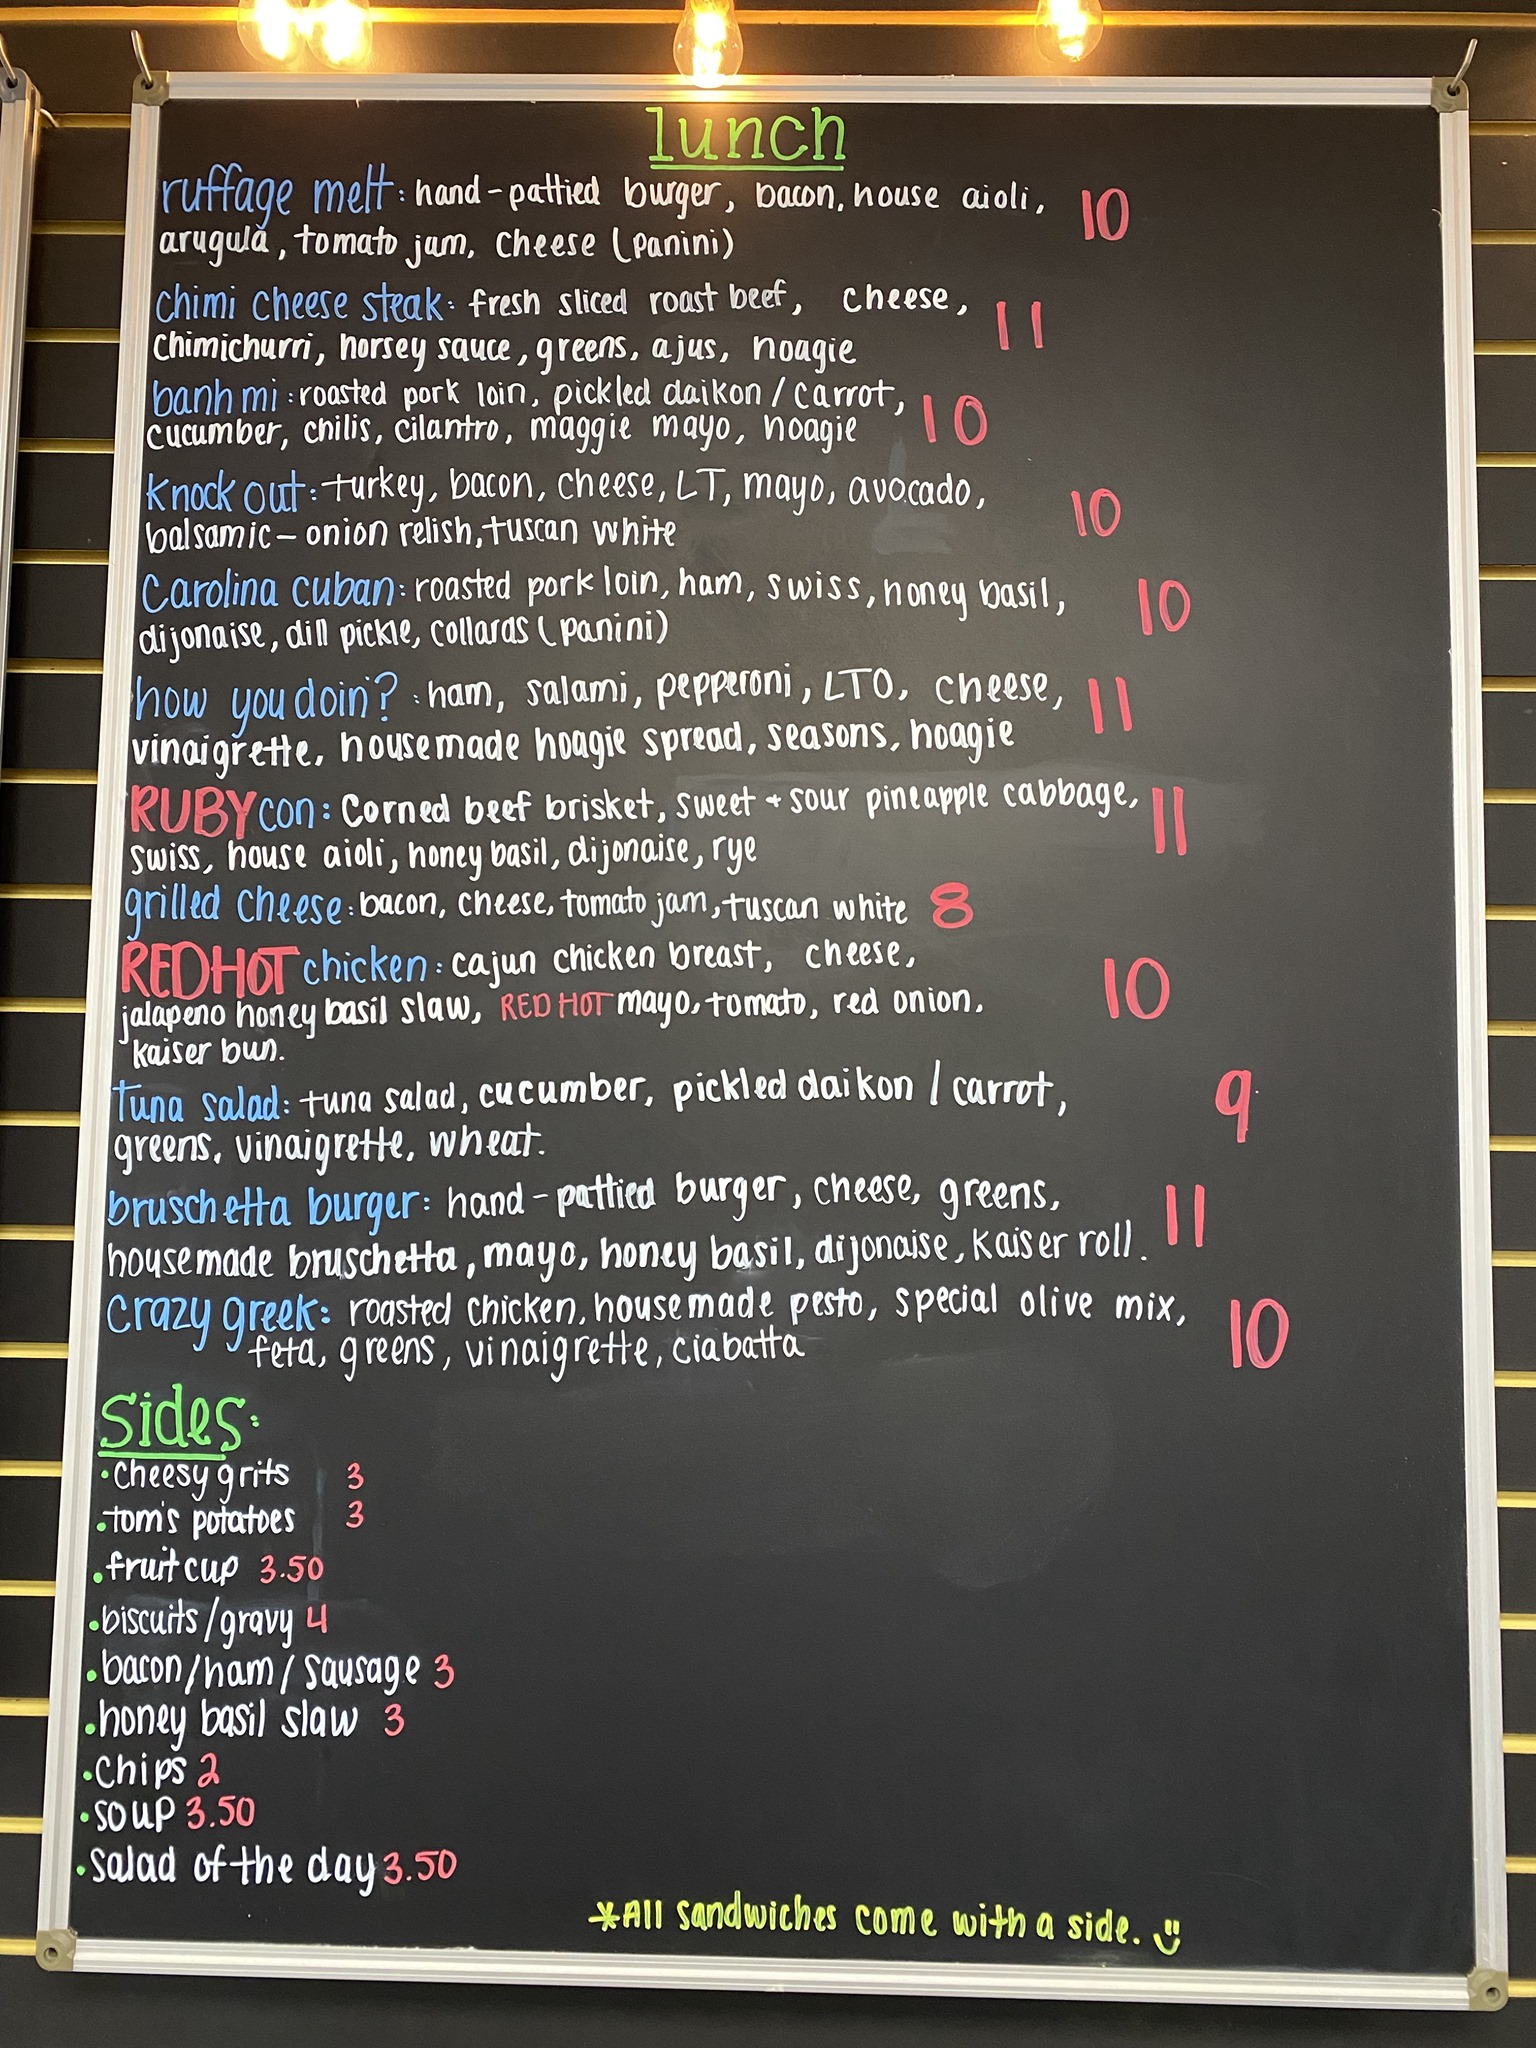 lunch
ruffage melt: hand-pattied burger, bacon, house aioli, 10
arugula, tomato jam, cheese (panini)
chimi cheese steak: fresh sliced roast beef, cheese, 11
chimichurri, horsey sauce, greens, ajus, hoagie
banh mi: roasted pork loin, pickled daikon / carrot, 10
cucumber, chilis, cilantro, maggie mayo, hoagie
knock out: turkey, bacon, cheese, LT, mayo, avocado, 10
balsamic-onion relish, tuscan white
Carolina cuban: roasted pork loin, ham, swiss, honey basil, 10
dijonaise, dill pickle, collards (panini)
how you doin'? : ham, salami, pepperoni, LTO, cheese, 11
vinaigrette, housemade hoagie spread, seasons, hoagie
RUBY con: Corned beef brisket, sweet + sour pineapple cabbage, 11
swiss, house aioli, honey basil, dijonaise, rye
grilled cheese: bacon, cheese, tomato jam, tuscan white 8
RED HOT chicken: cajun chicken breast, cheese, 10
jalapeno honey basil slaw, RED HOT mayo, tomato, red onion,
kaiser bun.
Tuna salad: tuna salad, cucumber, pickled daikon / carrot, 9
greens, vinaigrette, wheat.
bruschetta burger: hand-pattied burger, cheese, greens, 11
housemade bruschetta, mayo, honey basil, dijonaise, kaiser roll.
Crazy greek: roasted chicken, housemade pesto, special olive mix, 10
feta, greens, vinaigrette, ciabatta
Sides:
• Cheesy grits 3
• tom's potatoes 3
• fruit cup 3.50
• biscuits/gravy 4
• bacon/ham/sausage 3
• honey basil slaw 3
• Chips 2
• soup 3.50
• salad of the day 3.50
*All sandwiches come with a side.